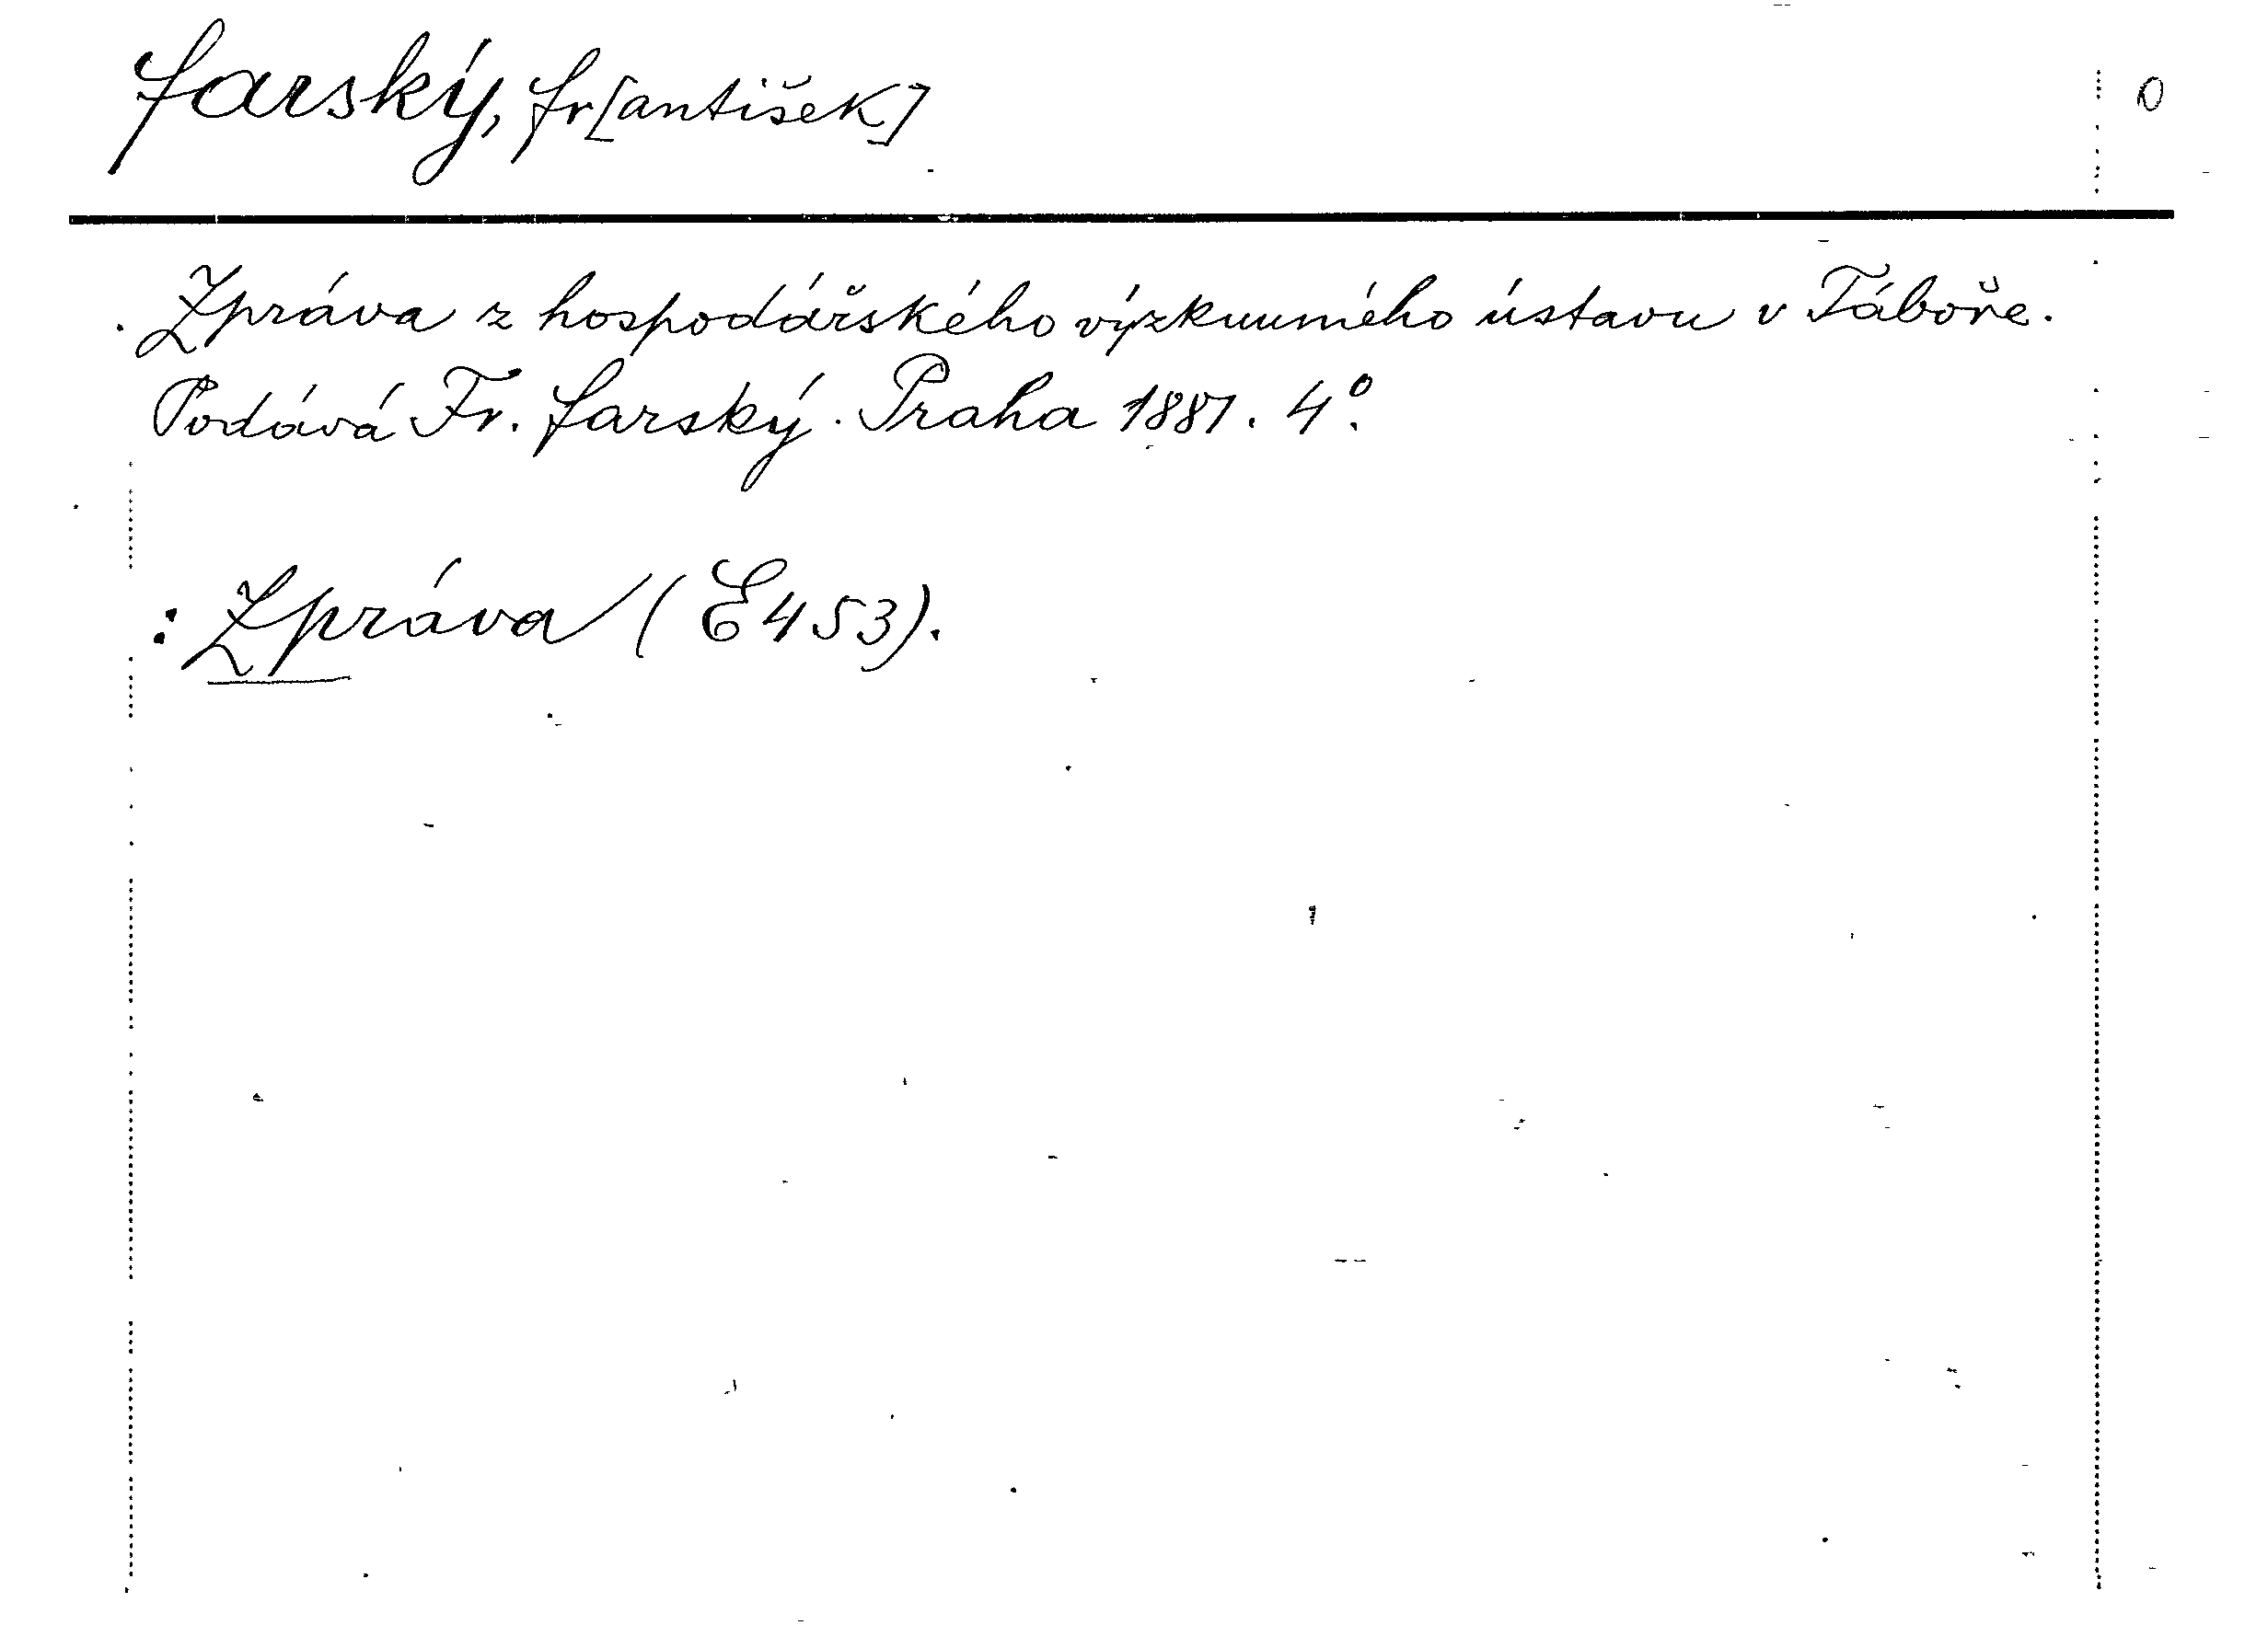 Farský, Fr[antišek] O
Zpráva z hospodářského výzkumného ústavu v Táboře.
Podává Fr. Farský. Praha 1881. 4°.
: Zpráva (E453).